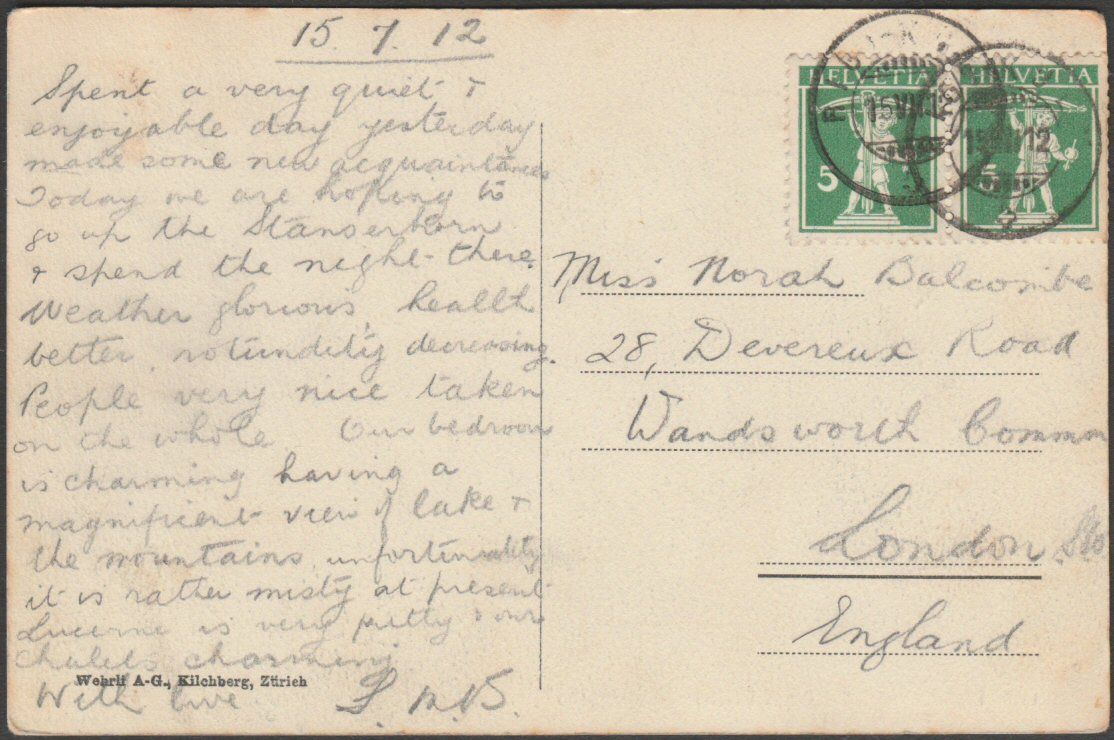 15. 7. 12
Spent a very quiet +
enjoyable day yesterday
made some new acquaintances
Today we are hoping to
go up the Stanserhorn
+ spend the night there.
Weather glorious, health
better, rotundity decreasing.
People very nice taken
on the whole Our bedroom
is charming having a
magnificent view of lake +
the mountains unfortunately
it is rather misty at present
Lucerne is very pretty + our
chalets charming
With love
Wehrli A-G., Kilchberg, Zürich
HELVETIA HELVETIA
5 5
15 VII 12
Miss Norah Balcombe
28, Devereux Road
Wandsworth Common
London
England